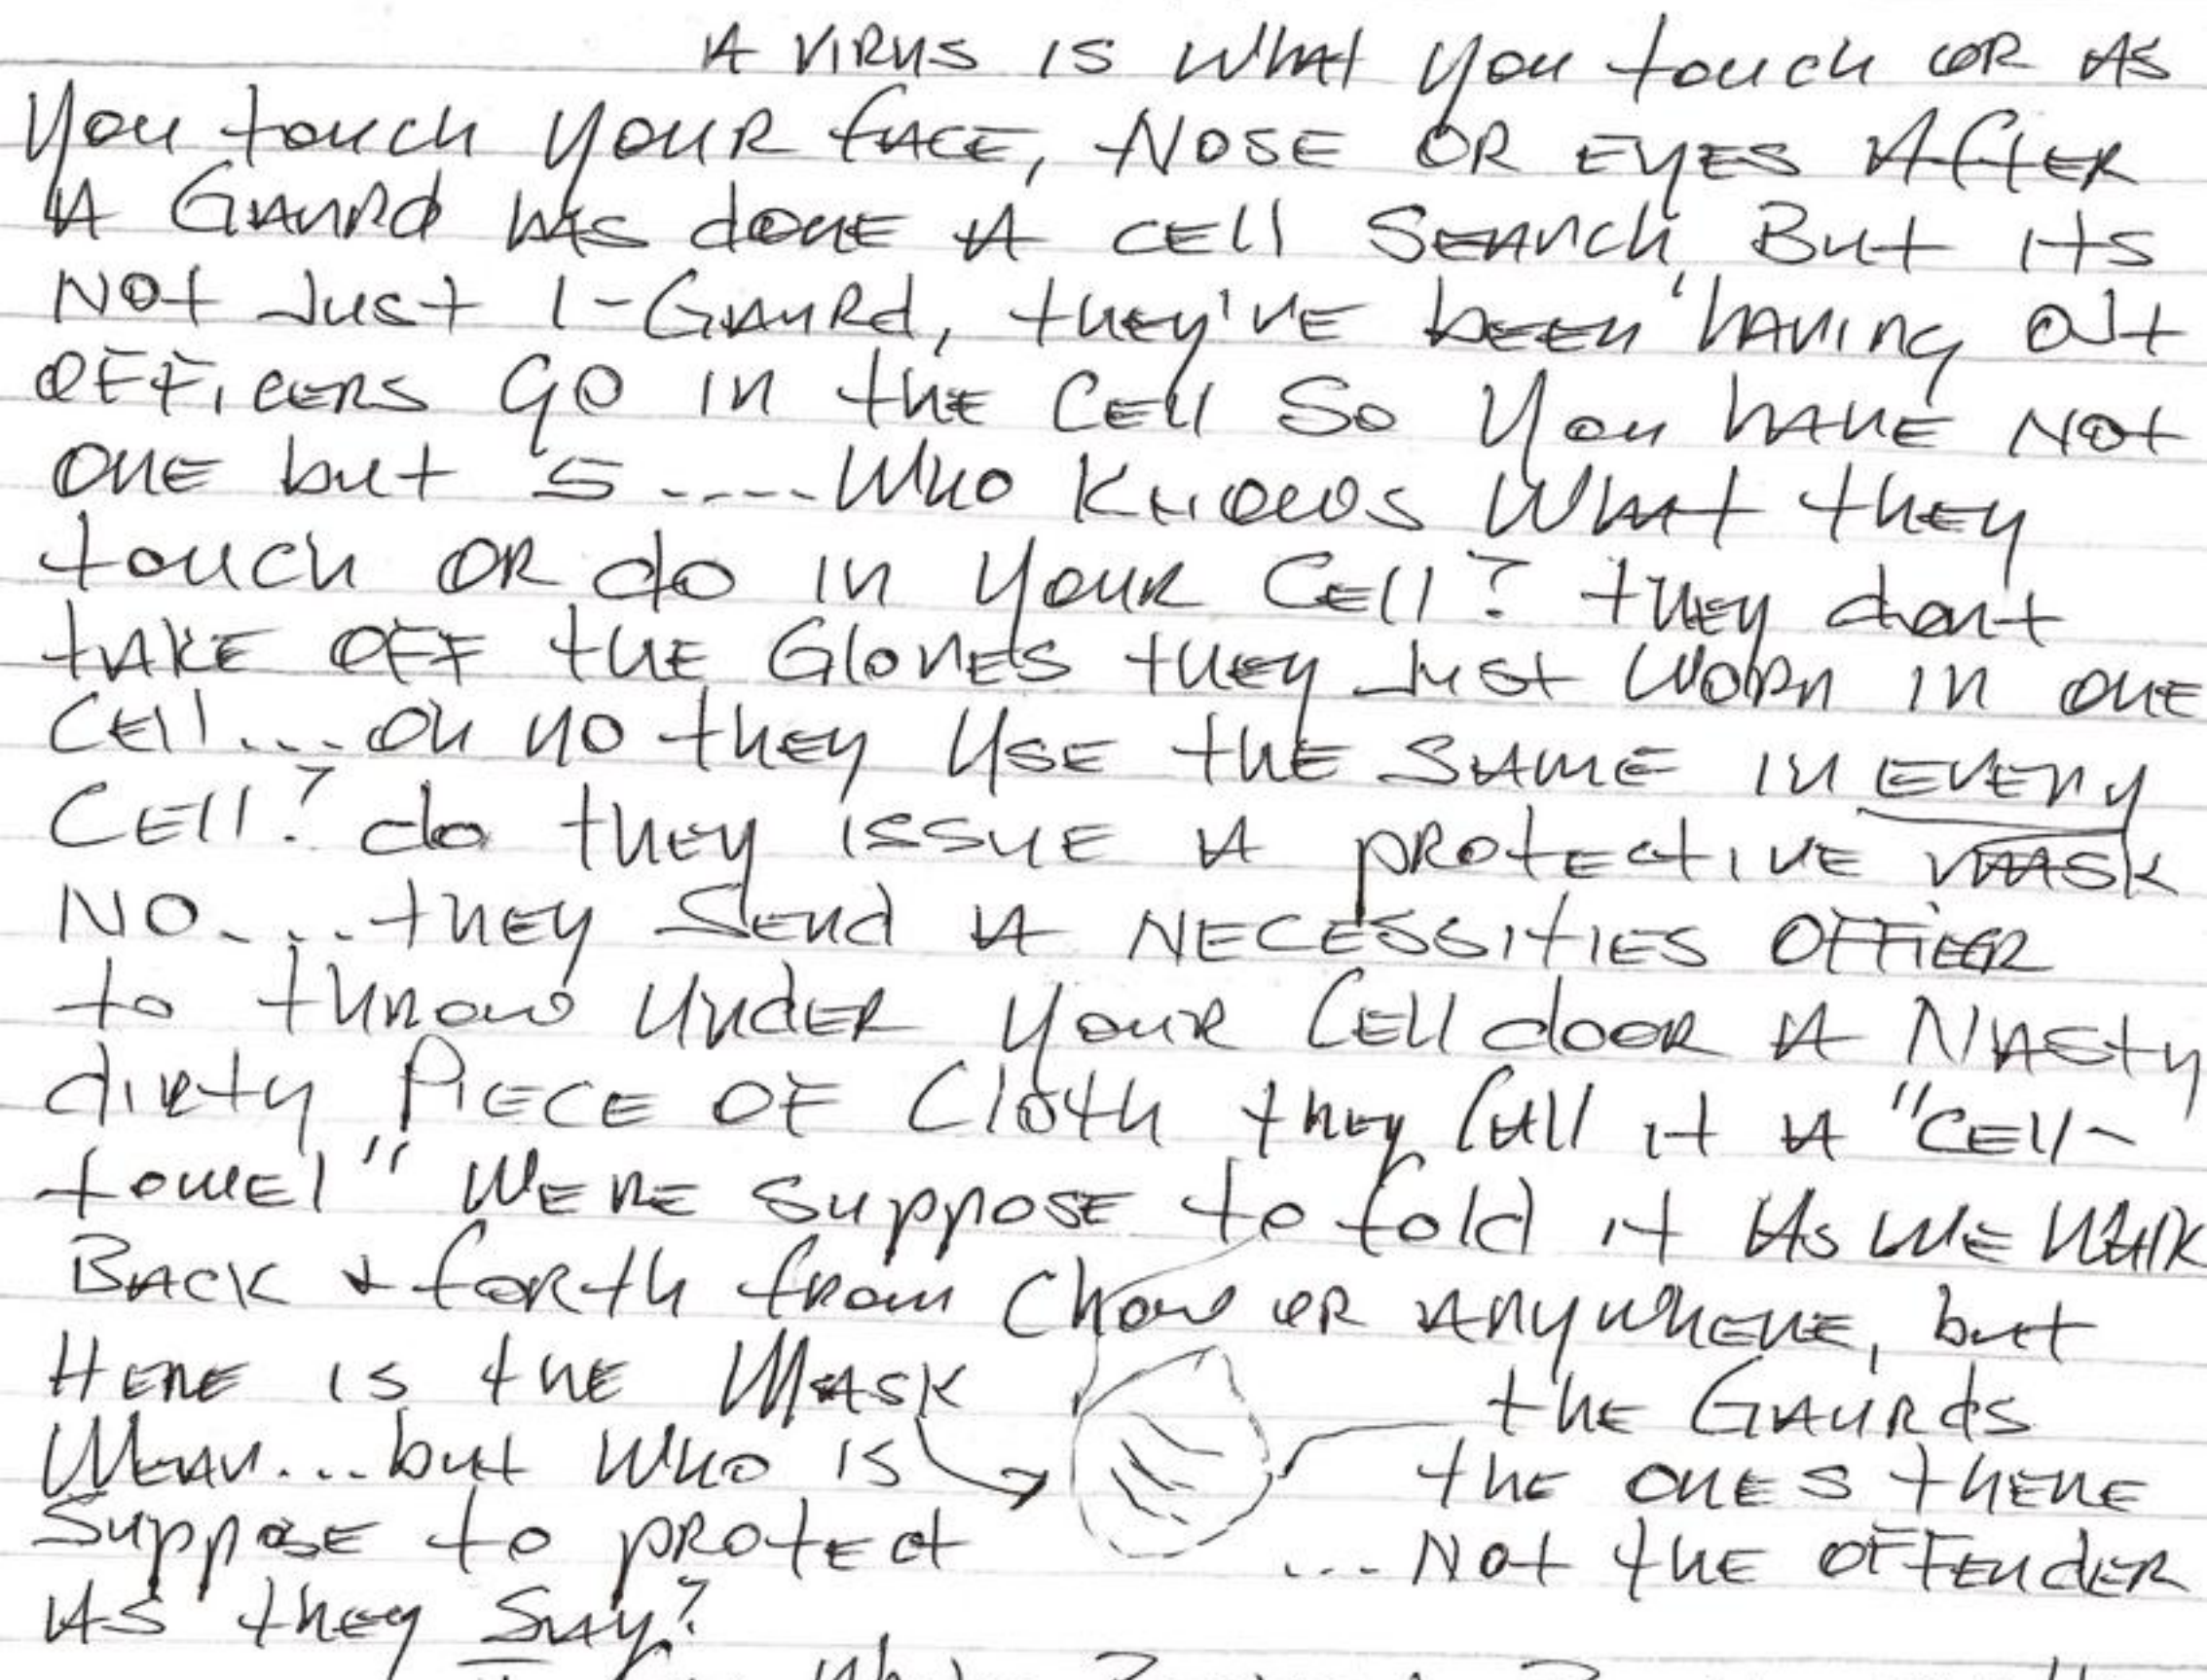 A VIRUS IS WHAT you touch OR AS
you touch YOUR FACE, NOSE OR EYES AFTER
A GAURd HAS doNE A CEll SEARch, But Its
Not Just 1-GAURd, they'VE bEEN having
OFFICERS go IN thE CEll So You hAVE Not
oNE but 5 .... Who KNOWS WhAt they
touch OR do IN YOUR CEll? they dont
tAKE OFF thE GloVES they Just WORN IN oNE
CEll... oh no they USE thE SAME IN EVERY
CEll? do they ISSUE A PROtEctIVE MASK
NO.... they SENd A NECESSItIES OFFICER
to thRow UNdER YOUR CEll dooR A NAsty
diRty PiECE OF Cloth they CAll it A "CEll-
towEl" WERE SuppoSE to fold it As WE WAlk
BACK & foRth fRom Chow oR ANYWHERE, but
HERE IS thE MASK
thE GAURds
MEAN... but Who IS
thE oNES thERE
SuppoSE to pRotEct
... Not thE OFFENdER
AS they SAy?